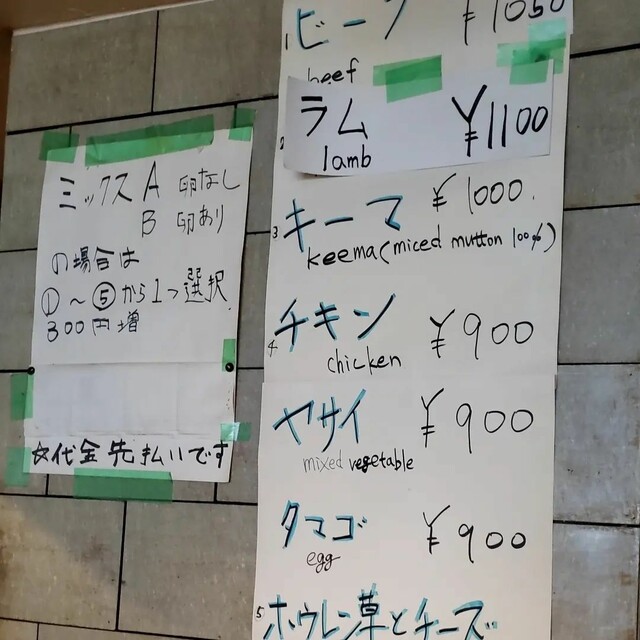 ミックス A 卵なし
B 卵あり
の場合は
①～⑤から1つ選択
300円増
☆代金先払いです
1 ビーフ ¥1050
beef
2 ラム ¥1100
lamb
3 キーマ ¥1000.
keema(miced mutton 100%)
4 チキン ¥900
chicken
ヤサイ ¥900
mixed vegetable
タマゴ ¥900
egg
5 ホウレン草とチーズ